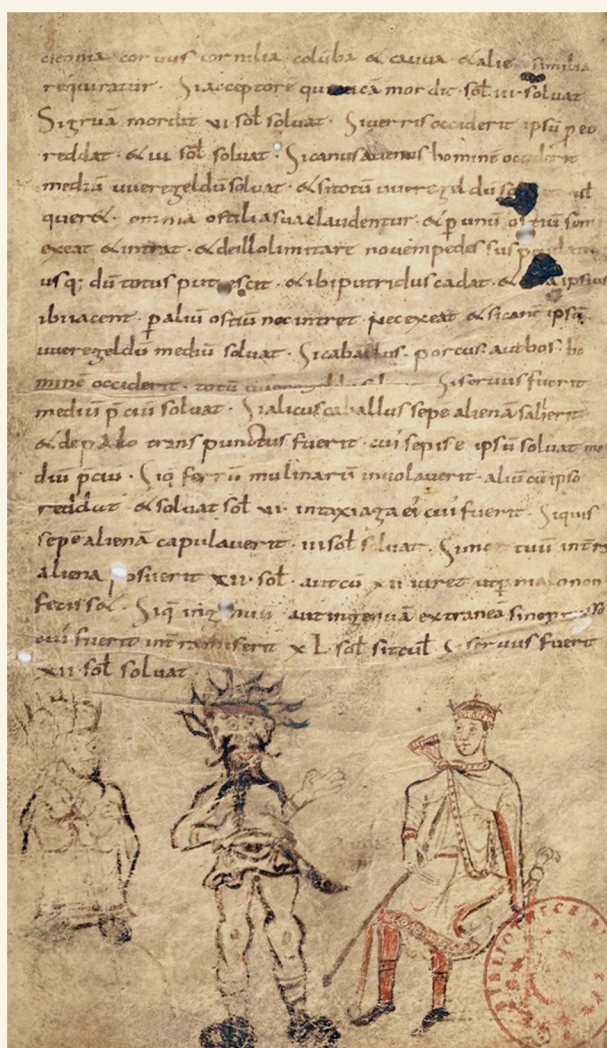 ciconia · coruus cornelia · colūba & cauua · & alie similia
requiratur · Si acceptore qui aucā mordit · sol̄ · III · soluat
Si gruā mordit VI sol̄ soluat · Si uerris occiderit ipsū p eo
reddat · & VII sol̄ soluat · Si canis alienus hominē occiderit
mediū uueregeldū soluat · & si totū uueregeldū
quer& · omnia ostilia sua claudentur · & p unū ostiū semp
exeat & intrat · & de illo limitare nouem pedes suspendatur
usq; dū totus putrescit · & ibi putridus cadat · & ossa ipsius
ibi iacent · p aliū ostiū nec intret nec exeat · & si canē ipsū
uueregeldū mediū soluat · Si caballus · porcus · aut bos · ho
minē occiderit · totū Si seruus fuerit
mediū p̄ciū soluat · Si alicus caballus sepe alienā salierit
& de palo transpunctus fuerit · cui sepis e ipsū soluat me
diū p̄ciū · Si q̄ ferrū mulinariū inuolauerit · aliū cū ipso
reddat · & soluat sol̄ VI · in taxiaga ei cui fuerit · Siquis
sepē alienā capulauerit · III sol̄ soluat · Si mortuū in tr̄a
aliena posuerit XII · sol̄ · aut cū XII iuret ut p malo non
fecisset · Si q̄ ingenuū · aut ingenuā extranea sine p
cui fuerit intramiserit XL · sol̄ sit cul̄ · Si seruus fuerit
XII · sol̄ soluat